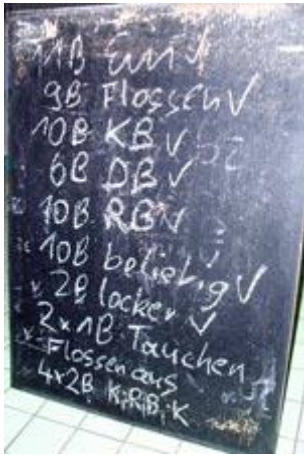 11B Ein ✓
9B Flossen ✓
10B KB ✓
6B DB ✓
10B RB ✓
10B beliebig ✓
2B locker ✓
2x1B Tauchen
Flossen aus
4x2B K,R,B,K